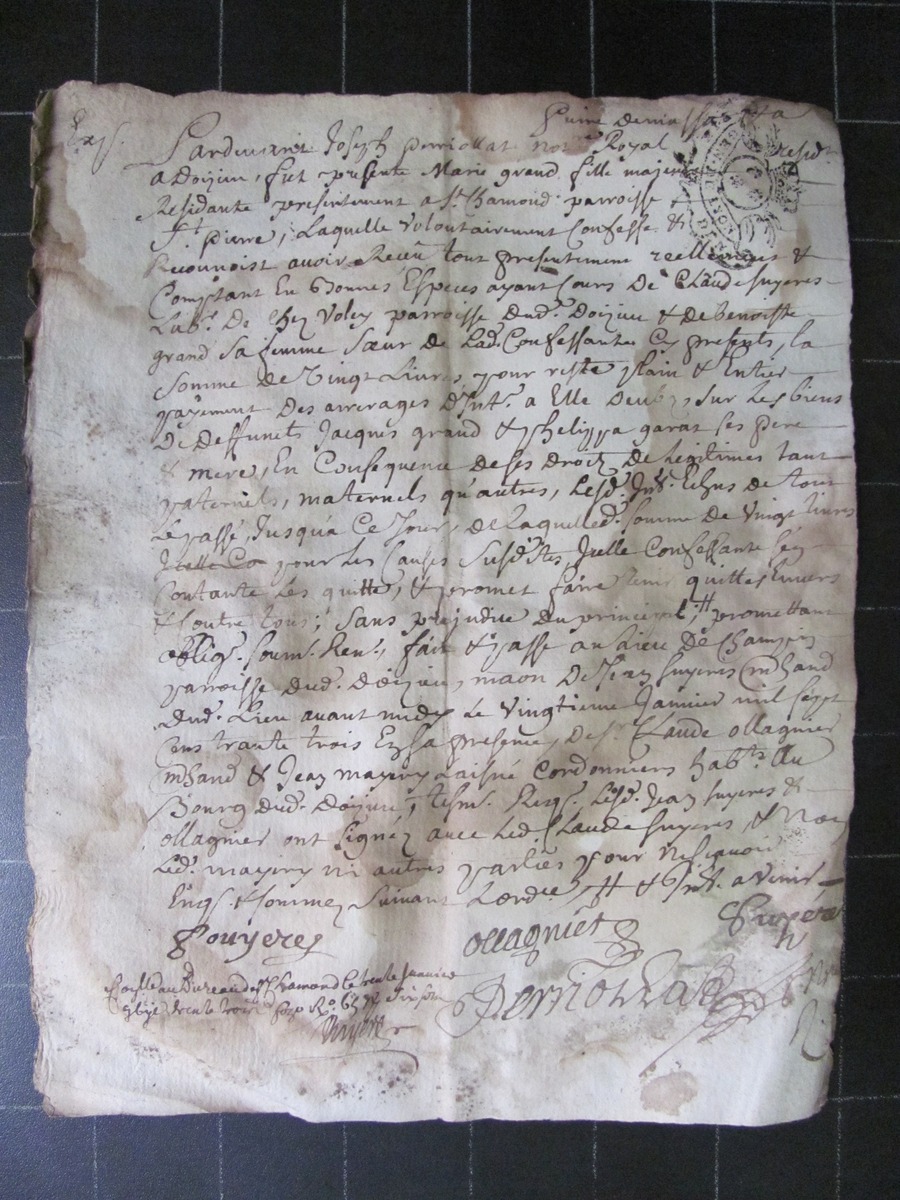 Pardevant Joseph perriollat not.re Royal resid.t
A Doizieu, fut presente Marie grand fille majeure
Residante presentement a S.t Chamond parroisse
S.t pierre, Laquelle Volontairement Confesse &
Reconnoist avoir Receu tout presentement reellement &
Comptant En bonnes Especes ayant Cours De Claude suyeres
Lab.r De Chez Voley parroisse Dud.t Doizieu & de benoiste
grand sa femme sœur de Lad. Confessante Cy presents, la
somme de Vingt Livres pour reste plain & Entier
payement Des arrerages D'Int.s a Elle Deubs sur Les biens
De Deffunts Jacques grand & phelippa garat ses pere
& mere, En Consequence de ses Droits De Legitimes tant
paternels, maternels qu'autres, Lesd. Int.s de tout
Le passé Jusqua Ce Jour, de Laquelled. somme de Vingt livres
pour les Causes susd.tes Icelle Confessante
Contante Les quitte, & promet faire tenir quittes Envers
& Contre tous; sans prejudice Du principal, promettant
oblig. soum. Ren., fait & passé au Lieu De
parroisse Dud. Doizieu, maon De Jean suyeres mhand
Dud. Lieu avant midy Le Vingtieme Janvier mil sept
Cens trante trois Ez presences De s.r Claude ollagnier
mhand & Jean mayery Laisné Cordonniers hab.ts Au
Bourg Dud. Doizieu, tesm. Req. Lesd. Jean suyeres &
ollagnier ont signéz avec Led. Claude suyeres, & Non
Led. mayery ni autres parties pour ne scavoir
Enqs & sommez suivant Lordce # & Int. a venir
Souyeres
ollagniet
Perriollat
Conlle au Bureau de S.t Chamond le trente Janvier
trente trois